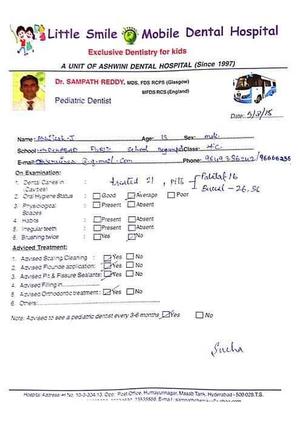 Little Smile Mobile Dental Hospital
Exclusive Dentistry for kids
A UNIT OF ASHWINI DENTAL HOSPITAL (Since 1997)
Dr. SAMPATH REDDY, MDS, FDS RCPS (Glasgow)
MFDS RCS (England)
Pediatric Dentist
Date:
Name: Age: 13 Sex: male
School: School Class:
E-mail
On Examination:
1. Dental Caries in (Cavities) : treated 21, Pits Palatal 16
Buccal - 26, 36
2. Oral Hygiene Status : Good Average Poor
3. Physiological Spaces : Present Absent
4. Habits : Present Absent
5. Irregular teeth : Present Absent
6. Brushing twice : Yes No
Advised Treatment:
1. Advised Scaling Cleaning : Yes No
2. Advised Flouride application: Yes No
3. Advised Pit & Fissure Sealants: Yes No
4. Advised Filling in
5. Advised Orthodontic treatment : Yes No
6. Others:
Note: Advised to see a pediatric dentist every 3-6 months Yes No
Sneha
Hospital Address : H No. 10-3-304/13, Opp. Post Office, Humayunnagar, Masab Tank, Hyderabad - 500 028.T.S.